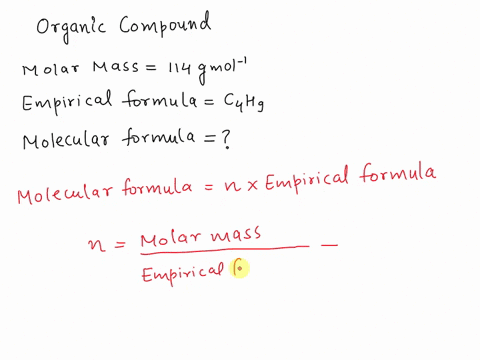 Organic Compound
Molar Mass = 114 gmol⁻¹
Empirical formula = C₄H₉
Molecular formula = ?
Molecular formula = n × Empirical formula
n = Molar mass —
Empirical f